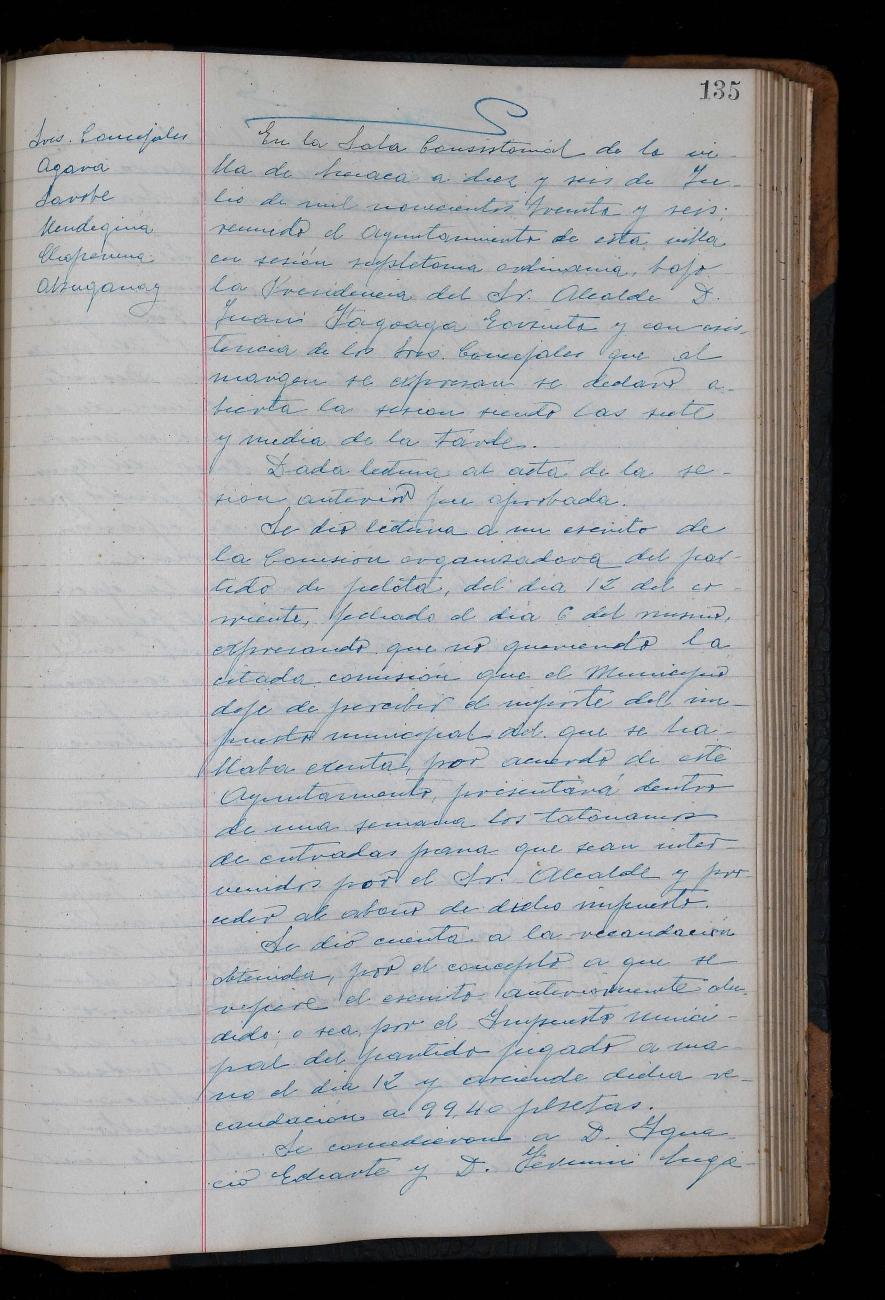 135
Sres. Concejales
Agara
Sarobe
Mendeguia
En la Sala Consistorial de la vi-
lla de a diez y seis de Ju-
lio de mil novecientos treinta y seis;
reunido el Ayuntamiento de esta villa
en sesión supletoria ordinaria, bajo
la Presidencia del Sr. Alcalde D.
Juan y con asis-
tencia de los Sres. Concejales que al
margen se expresan se declaró a-
bierta la sesion siendo las siete
y media de la tarde.
Dada lectura al acta de la se-
sion anterior fue aprobada.
Se dio lectura a un escrito de
la Comision organizadora del par-
tido de pelota, del dia 12 del co-
rriente, fechado el dia 6 del mismo,
expresando que no queriendo la
citada comisión que el Municipio
deje de percibir el importe del im-
puesto municipal del que se ha-
llaba exenta, por acuerdo de este
Ayuntamiento, presentará dentro
de una semana los talonarios
de entradas para que sean inter-
venidos por el Sr. Alcalde y pro-
ceder al abono de dicho impuesto.
Se dió cuenta a la recaudación
obtenida, por el concepto a que se
refiere el escrito anteriormente alu-
dido: o sea por el Impuesto munici-
pal del partido jugado a ma-
no el dia 12 y asciende dicha re-
caudación a 99,40 pesetas.
Se concedieron a D. Igna-
cio Echarte y D. Fermin